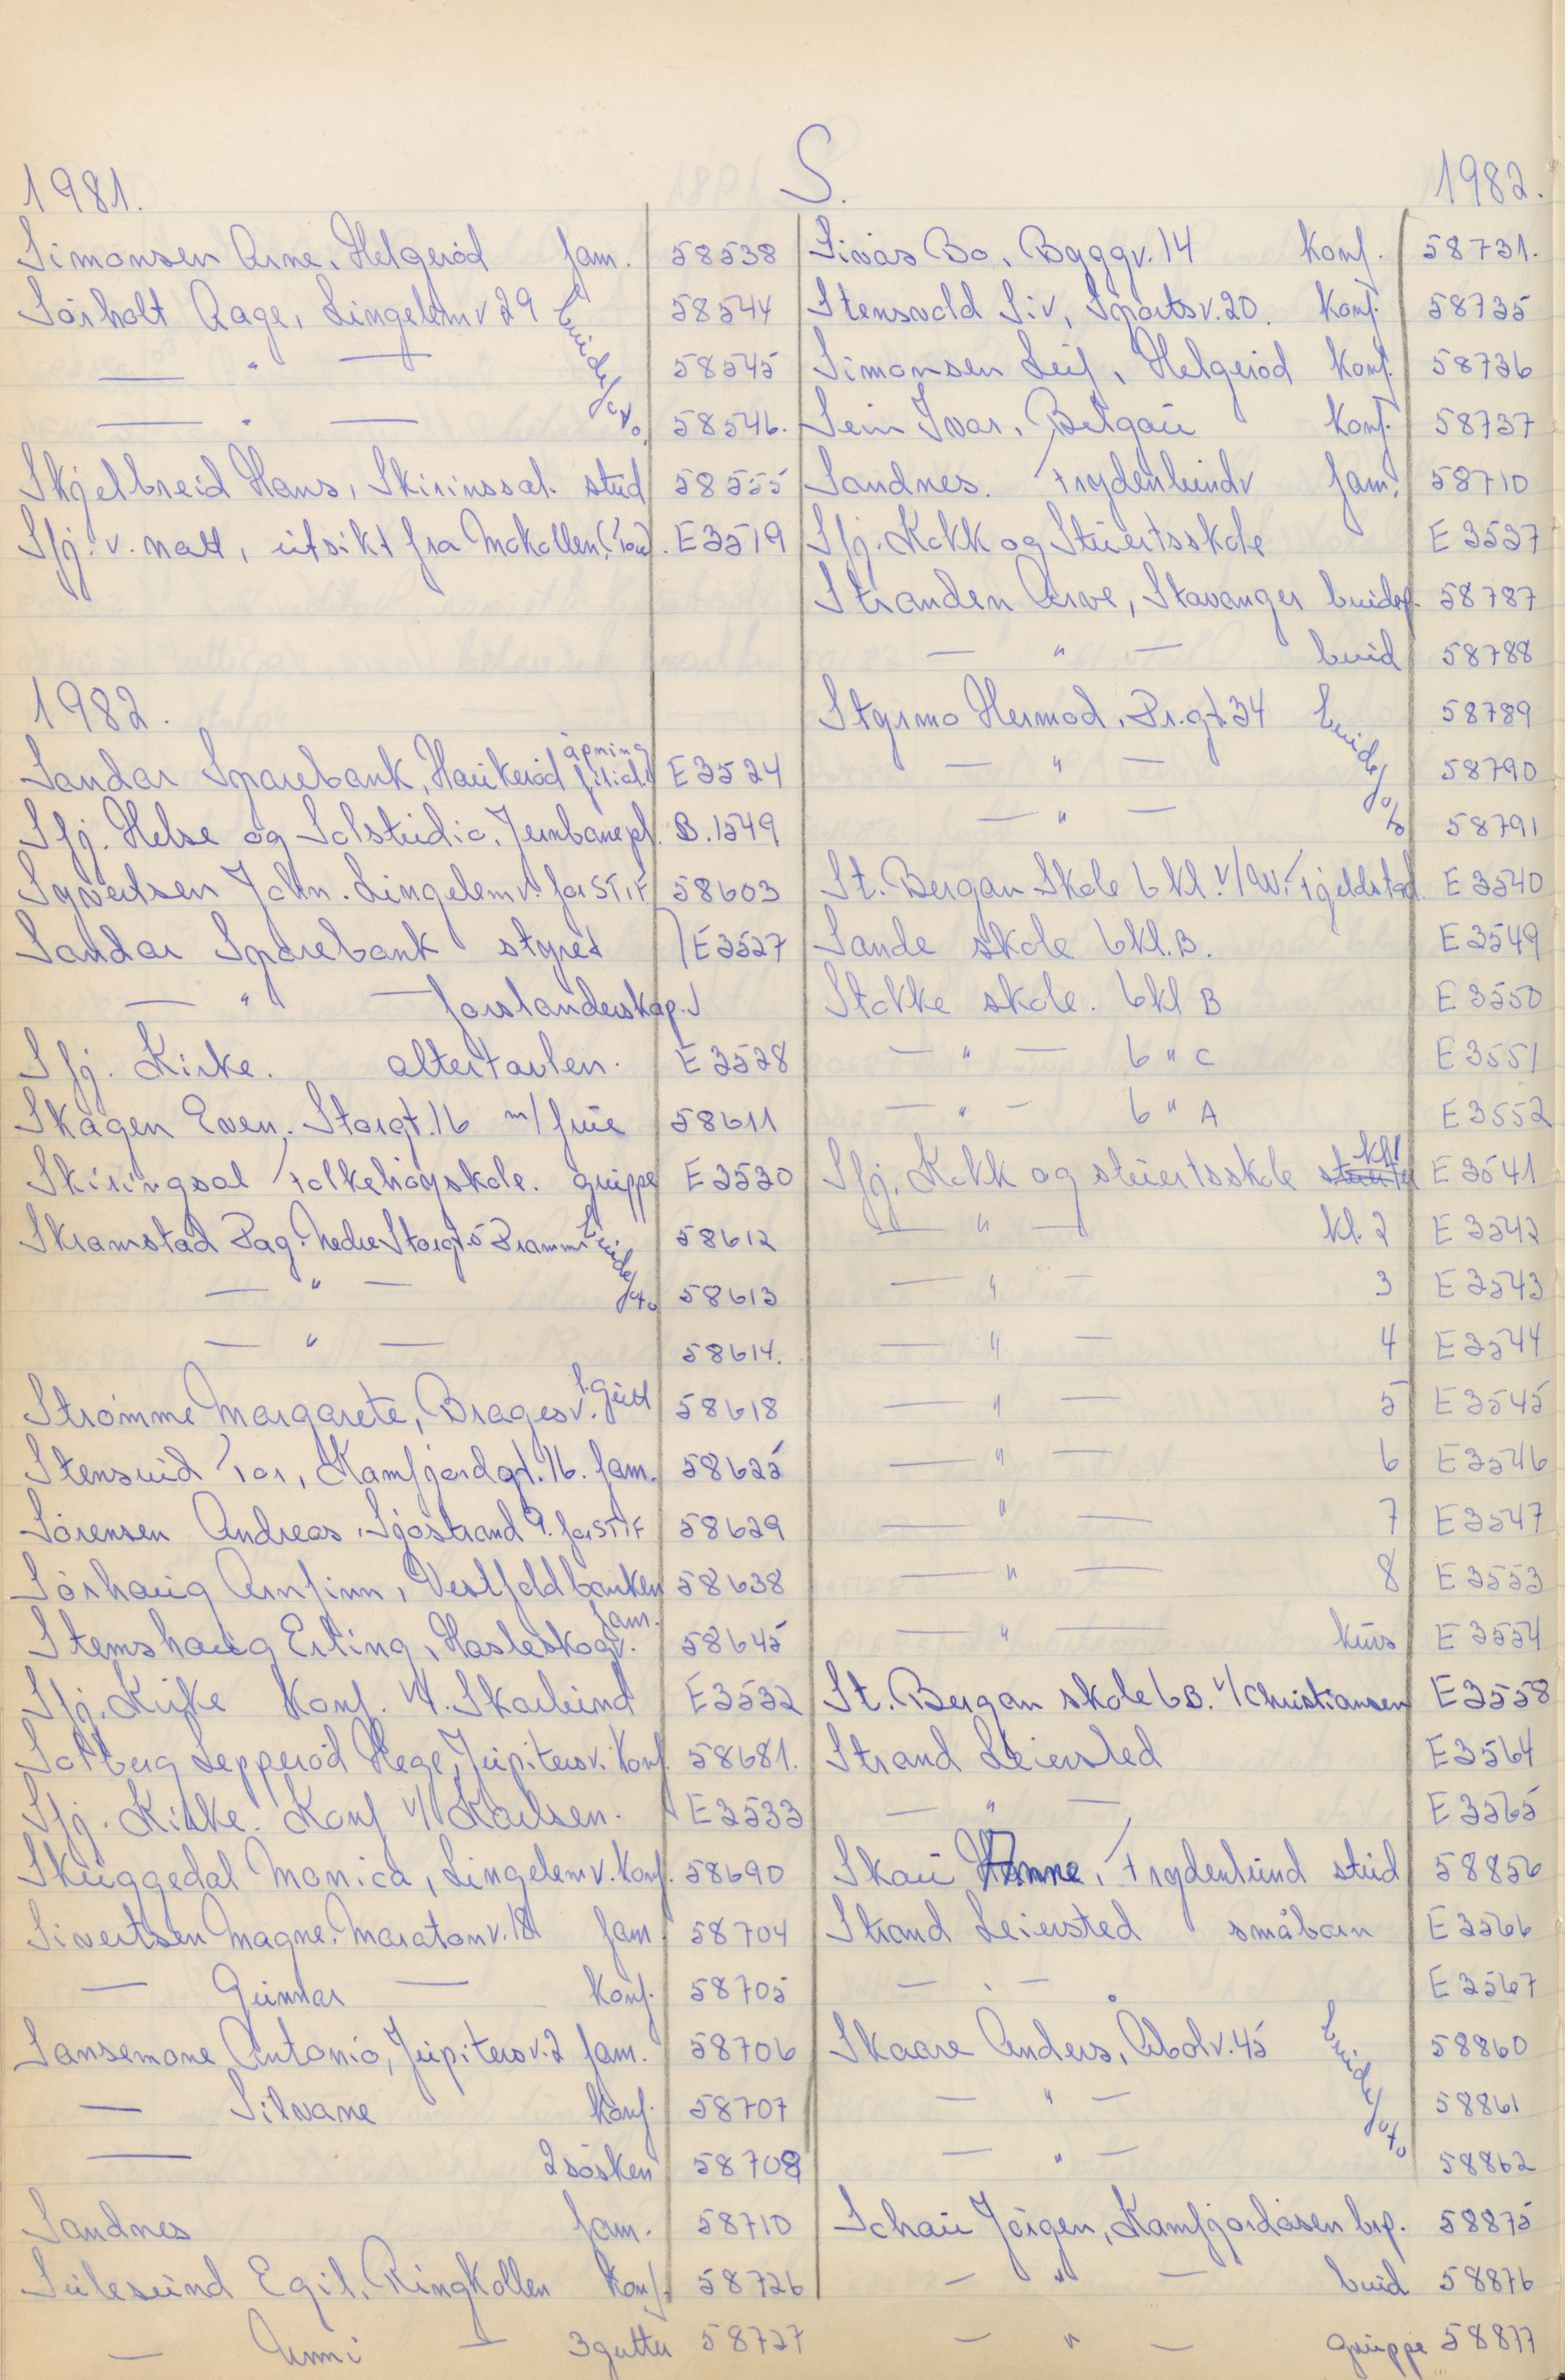 S.
1981.
Simonsen Arne, Helgeröd fam. 58538
Sörholt Aage, Lingelemv 29 brudefoto 58544
— " — 58545
— " — 58546.
Skjelbreid Hans, Skirinssal. stud 58555
Sfj. v. natt, utsikt fra Mokollen E3519
1982.
Sandar Sparebank, Haukeröd åpning filial E3524
Sfj. Helse og Solstudio, Jernbanepl. B.1549
Syvertsen John. Lingelemv. for STIF 58603
Sandar Sparebank styret E3527
— " — forstanderskap.
Sfj. Kirke. altertavlen. E3528
Skagen Even, Storgt. 16 m/frue 58611
Skiringsal Folkehögskole. gruppe E3530
Skramstad Dag. Nedre Storgt. 5 Dramm. brudefoto 58612
— " — 58613
— " — 58614.
Strömme Margarete, Bragesv. 1.gutt 58618
Stensrud Tor, Kamfjordgt. 16. fam. 58625
Sörensen Andreas, Sjöstrand 9. for STIF 58629
Sörhaug Arnfinn, Vestfoldbanken 58638
Stemshaug Erling, Hasleskogv. fam. 58645
Sfj. Kirke konf. v/. Skarlund E3532
Solberg Lepperöd Hege, Jupitersv. konf. 58681.
Sfj. Kirke. Konf v/ Karlsen. E3533
Skuggedal Monica, Lingelemv. konf. 58690
Sivertsen Magne. Maratonv. 18 fam. 58704
— Gunnar — konf. 58705
Sansemone Antonio, Jupitersv. 2 fam. 58706
— Silvane konf. 58707
— 2 sösken 58708
Sandnes fam. 58710
Sulesund Egil. Ringkollen konf. 58726
— Anni — 3 gutter 58727
1982.
Sivås Bo, Byggv. 14 konf. 58731.
Stensvold Siv, Sportsv. 20. konf. 58735
Simonsen Leif, Helgeröd konf. 58736
Sein Ivar, Bergan konf. 58737
Sandnes. Frydenlundv fam. 58710
Sfj. Kokk og Stuertsskole E3537
Stranden Arve, Stavanger brudep. 58787
— " — brud 58788
Styrmo Hermod, Pr.gt. 34 brudefoto 58789
— " — 58790
— " — 58791
St. Bergan Skole 6 kl. v/ Aw. Fjeldstad. E3540
Sande skole 6 kl. B. E3549
Stokke skole. 6 kl B E3550
— " — 6 " C E3551
— " — 6 " A E3552
Sfj. Kokk og stuertsskole kl 1 E3541
— " — kl. 2 E3542
— " — 3 E3543
— " — 4 E3544
— " — 5 E3545
— " — 6 E3546
— " — 7 E3547
— " — 8 E3553
— " — kurs E3554
St. Bergan skole 6B. v/ Christiansen E3558
Strand Leiersted E3564
— " — E3565
Skau Hanne, Frydenlund stud 58856
Strand Leiersted småbarn E3566
— " — E3567
Skaare Anders, Abolv. 45 brudefoto 58860
— " — 58861
— " — 58862
Schau Jörgen, Kamfjordåsen brp. 58875
— " — brud 58876
— " — gruppe 58877